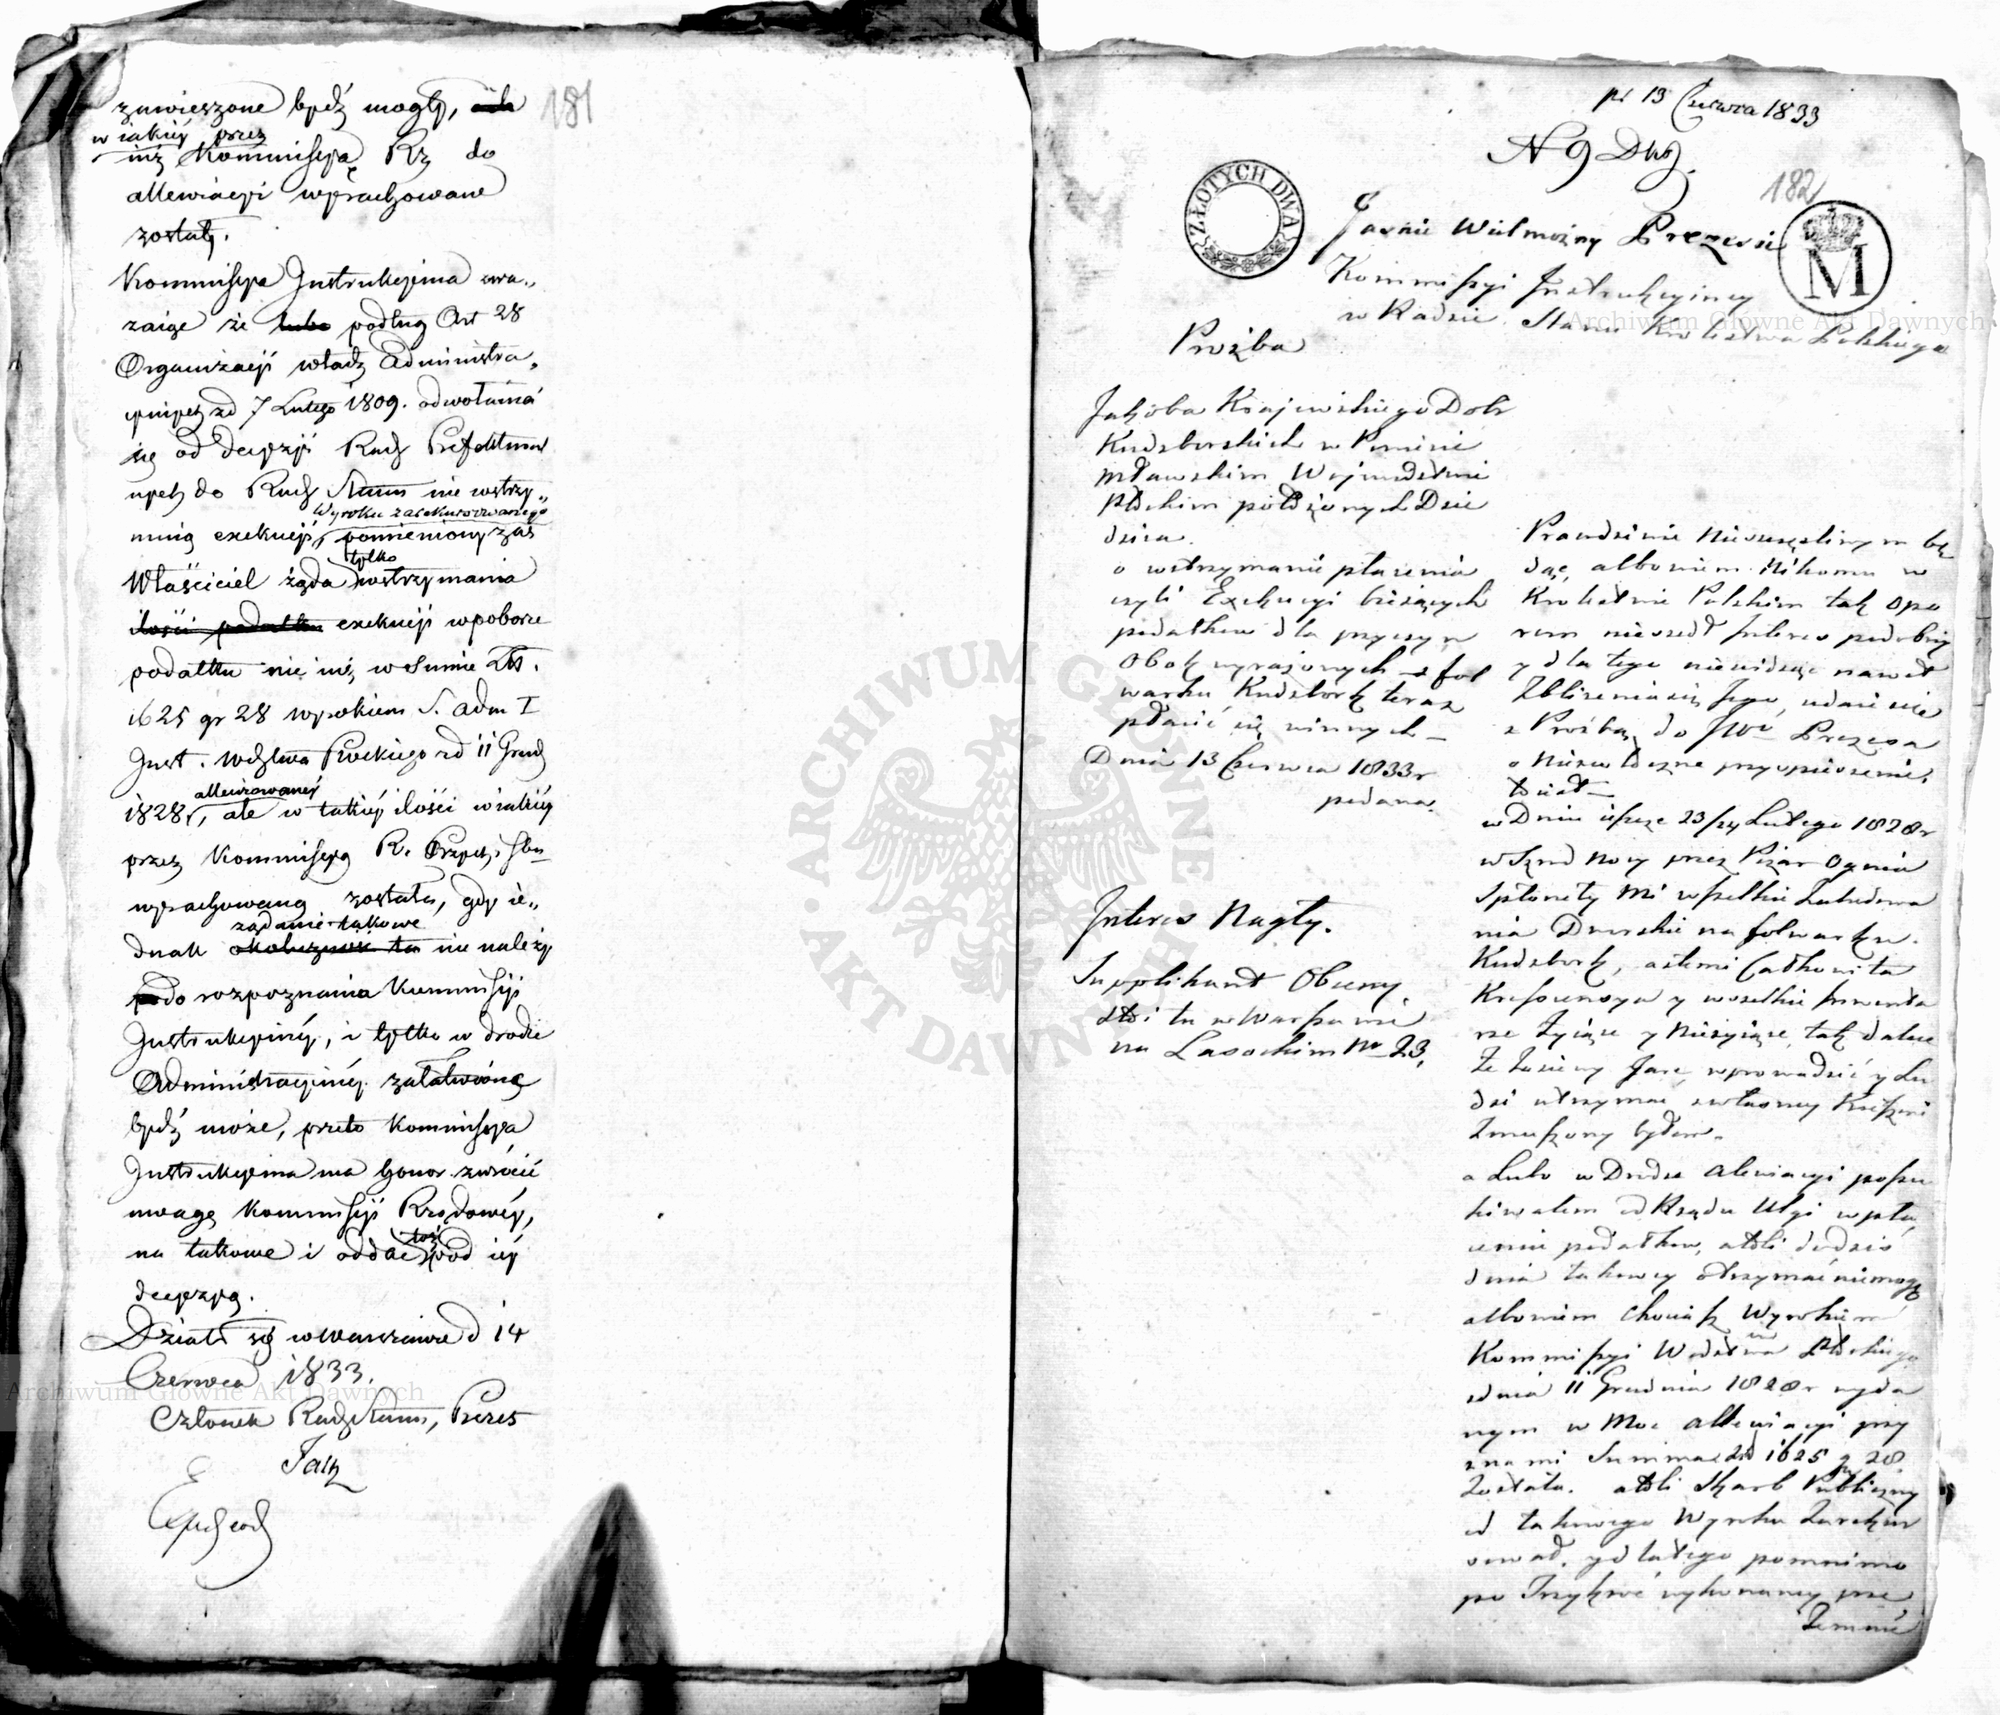 181
zawieszone bydź mogły, 
w iakiéy przez
iuż Kommissyą Rz do
allewiacyi wyrachowane
zostały.
Kommissya Instrukcyina uwa„
zaiąc że lubo podług Art 28
Organizacyi władz Administra„
cyinych zd 7 Lutego 1809. odwołania
się od decyzyi Rady Prefektural
nych do Rady Stanu nie wstrzy„
Wyroku zarekursowanego
muią exekucyi, pomieniony zaś
tylko
Właściciel żąda wstrzymania
ilości podatku exekucyi w poborze
podatku nie iuż w Summie Zł.
1625 gr 28 wyrokiem S. Adm I
Inst. Wdztwa Płockiego zd 11 Grud
allewiowanéy
1828r, ale w takiéy ilości w iakiéy
przez Kommissyą R. Przych. i Sbu
wyrachowaną została, gdy ie„
żądanie takowe
dnak okoliczność ta nie należy
do rozpoznania Kommissyi
Instrukcyinéy, i tylko w drodze
Administracyinéy załatwioną
bydź może, przeto Kommissya
Instrukcyina ma honor zwrócić
uwagę Kommissyi Rządowéy,
na takowe i oddać toż pod iéy
decyzyą.
Działo się w Warszawie d 14
Czerwca 1833.
Członek Rady Stanu, Prezes
pr 13 Czerwca 1833
N 9 
182
ZŁOTYCH DWA
M
Jaśnie Wielmożny Prezesie
Kommissyi Instrukcyiney
w Radzie Stanu Królestwa Polskiego
Prożba
Jakóba Krajewskiego Dobr
Kudsborskich w Powiecie
Mławskim Wojewodztwie
Płockim położonych Dzie
dzica.
o wstrzymanie płacenia
czyli Exekucyi bieżących
podatkow dla przyczyn
Obok wyrażonych z fol
warku Kudsbork teraz
płacić się winnych
Dnia 13 Czerwca 1833r
podana.
Interes Nagły.
Supplikant Obecny
stoi tu w Warszawie
na Lasockim No 23.
Prawdziwie Nieszczęśliwym bę
dąc, albowiem Nikomu w
Krolestwie Polskim tak opo
rem nieszedł Interes podobny
y dla tego niewidząc nawet
Zbliżenia się Jego, udaie się
z Prożbą do JW Prezesa
o Niezwłoczne przyspieszenie
to iest
w Dniu iescze 23/24 Lutego 1828r
w Szrod Nocy przez Pożar Ognia
Spłoneły Mi wszelkie Zabudowa
nia Dworskie na folwarku
Kudsbork, a z temi Całkowita
Krescencya y wszelkie Inwenta
rze Żyiące y Nieżyiące, tak dalece
Że Zasiewy Jare, wprowadzić y Lu
dzi utrzymać z własney Kieszeni
Zmuszony byłem.
a Lubo w Drodze Alewiacyi poszu
kiwałem od Rządu Ulgi w pła
ceniu podatkow, atoli do dziś
dnia takowey otrzymać niemogę
albowiem Chociasz Wyrokiem
Kommissyi Wodztwa Płockiego
z dnia 11 Grudnia 1828r wyda
nym w Moc Allewiacyi przy
znami Summa Zł 1625 gr 28
Została. atoli Skarb Publiczny
od takowego Wyroku Zarekur
sował, y dla tego pomnimo
po Trzykroć wykonaney prze
Zemnie